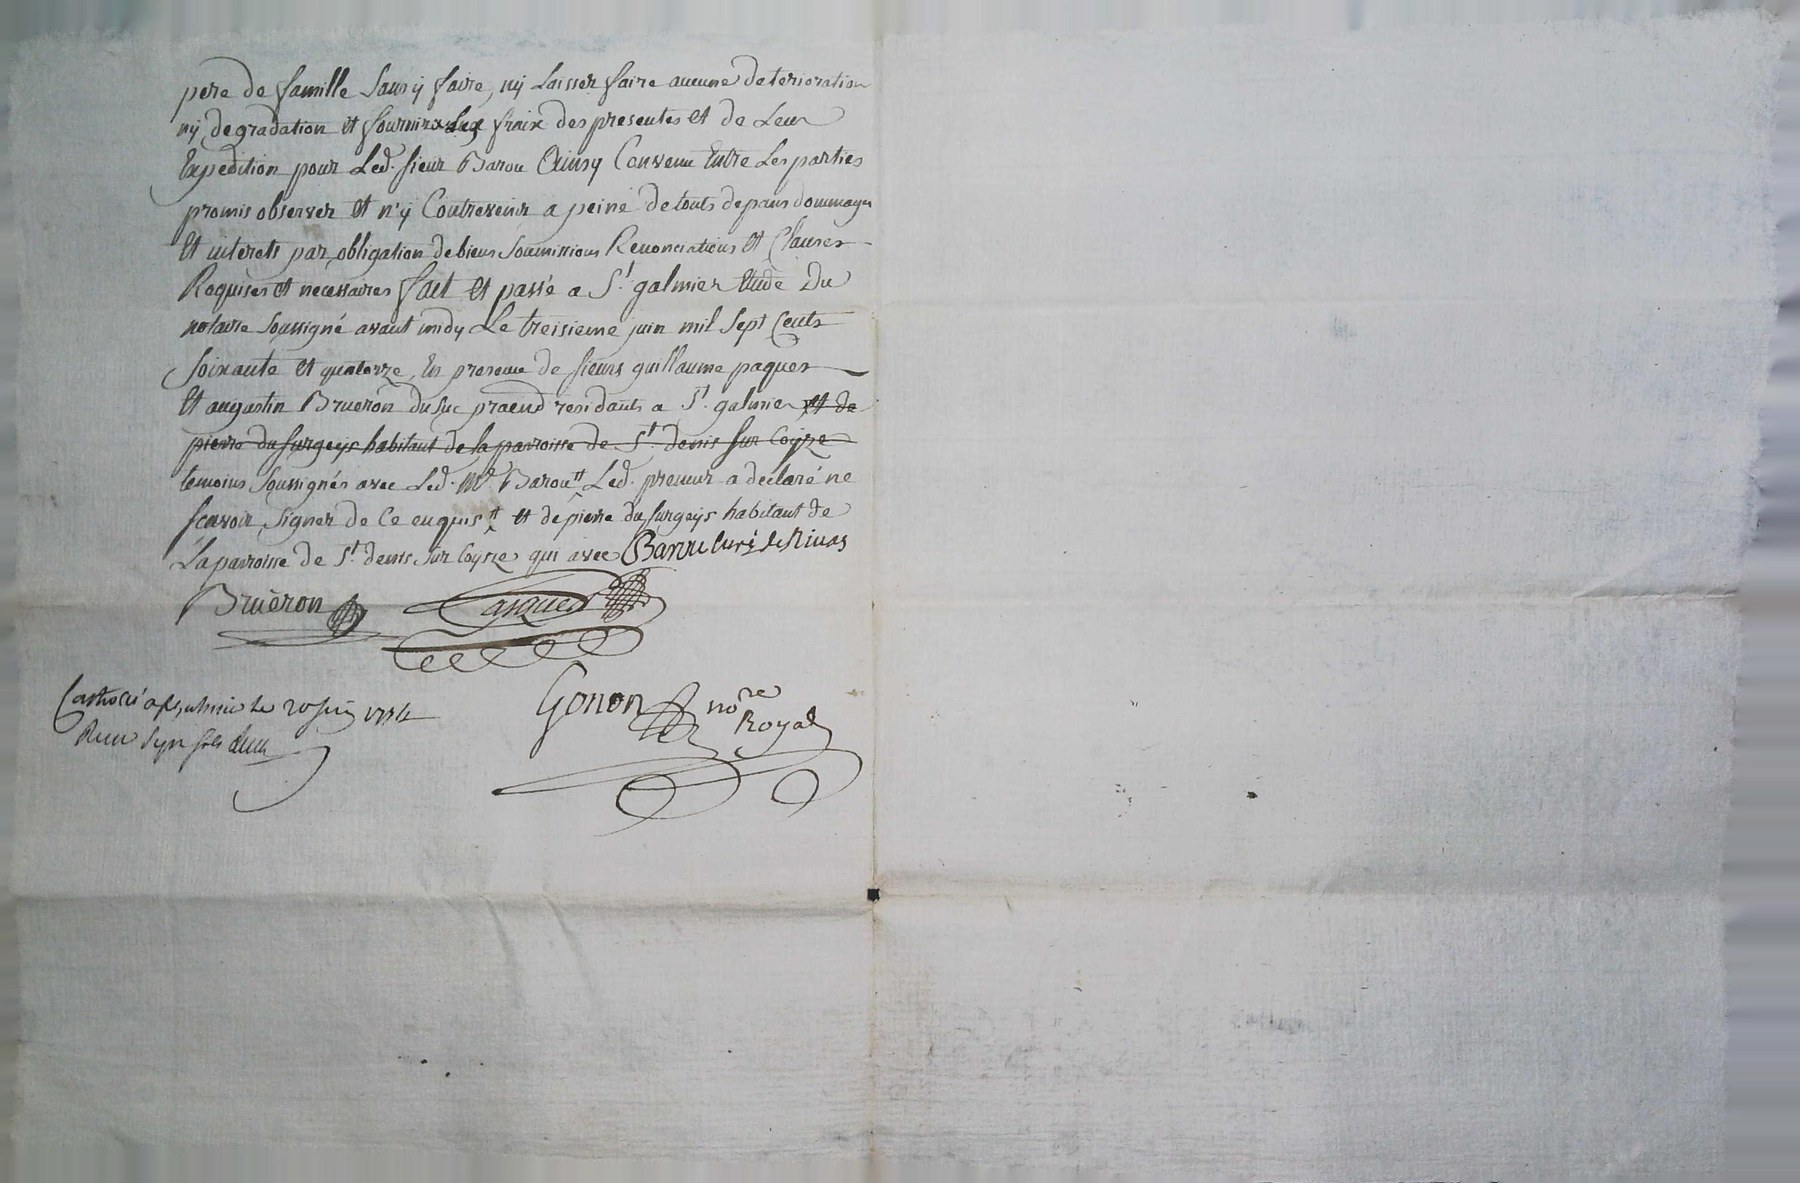 pere de famille sans y faire, ny laisser faire aucune deterioration
ny degradation et fournira les fraix des presentes et de leur
Expedition pour Led. sieur Barou Ainsy Convenu Entre Les parties
promis observer et n'y Contrevenir a peine de touts depans dommages
Et interets par obligation de biens soumissions Renonciations et Clauses
Requises et necessaires fait et passé a St. galmier Etude Du
notaire soussigné avant midy Le treisieme juin mil sept Cents
soixante et quatorze, En presence de sieurs guillaume paquet
Et augustin Bruëron du suc praend residants a St. galmier et de
pierre du surgeÿs habitant de la parroisse de St. denis sur Coÿze
temoins soussignés avec Led. Mre. Barou tt Led. preneur a declaré ne
scavoir signer de Ce enquis tt et de pierre du surgeÿs habitant de
La parroisse de St. denis sur Coyse qui avec Barou curé de Rivas
Bruëron Pasquet
Gonon nore
Royal
le 20 juin 1774